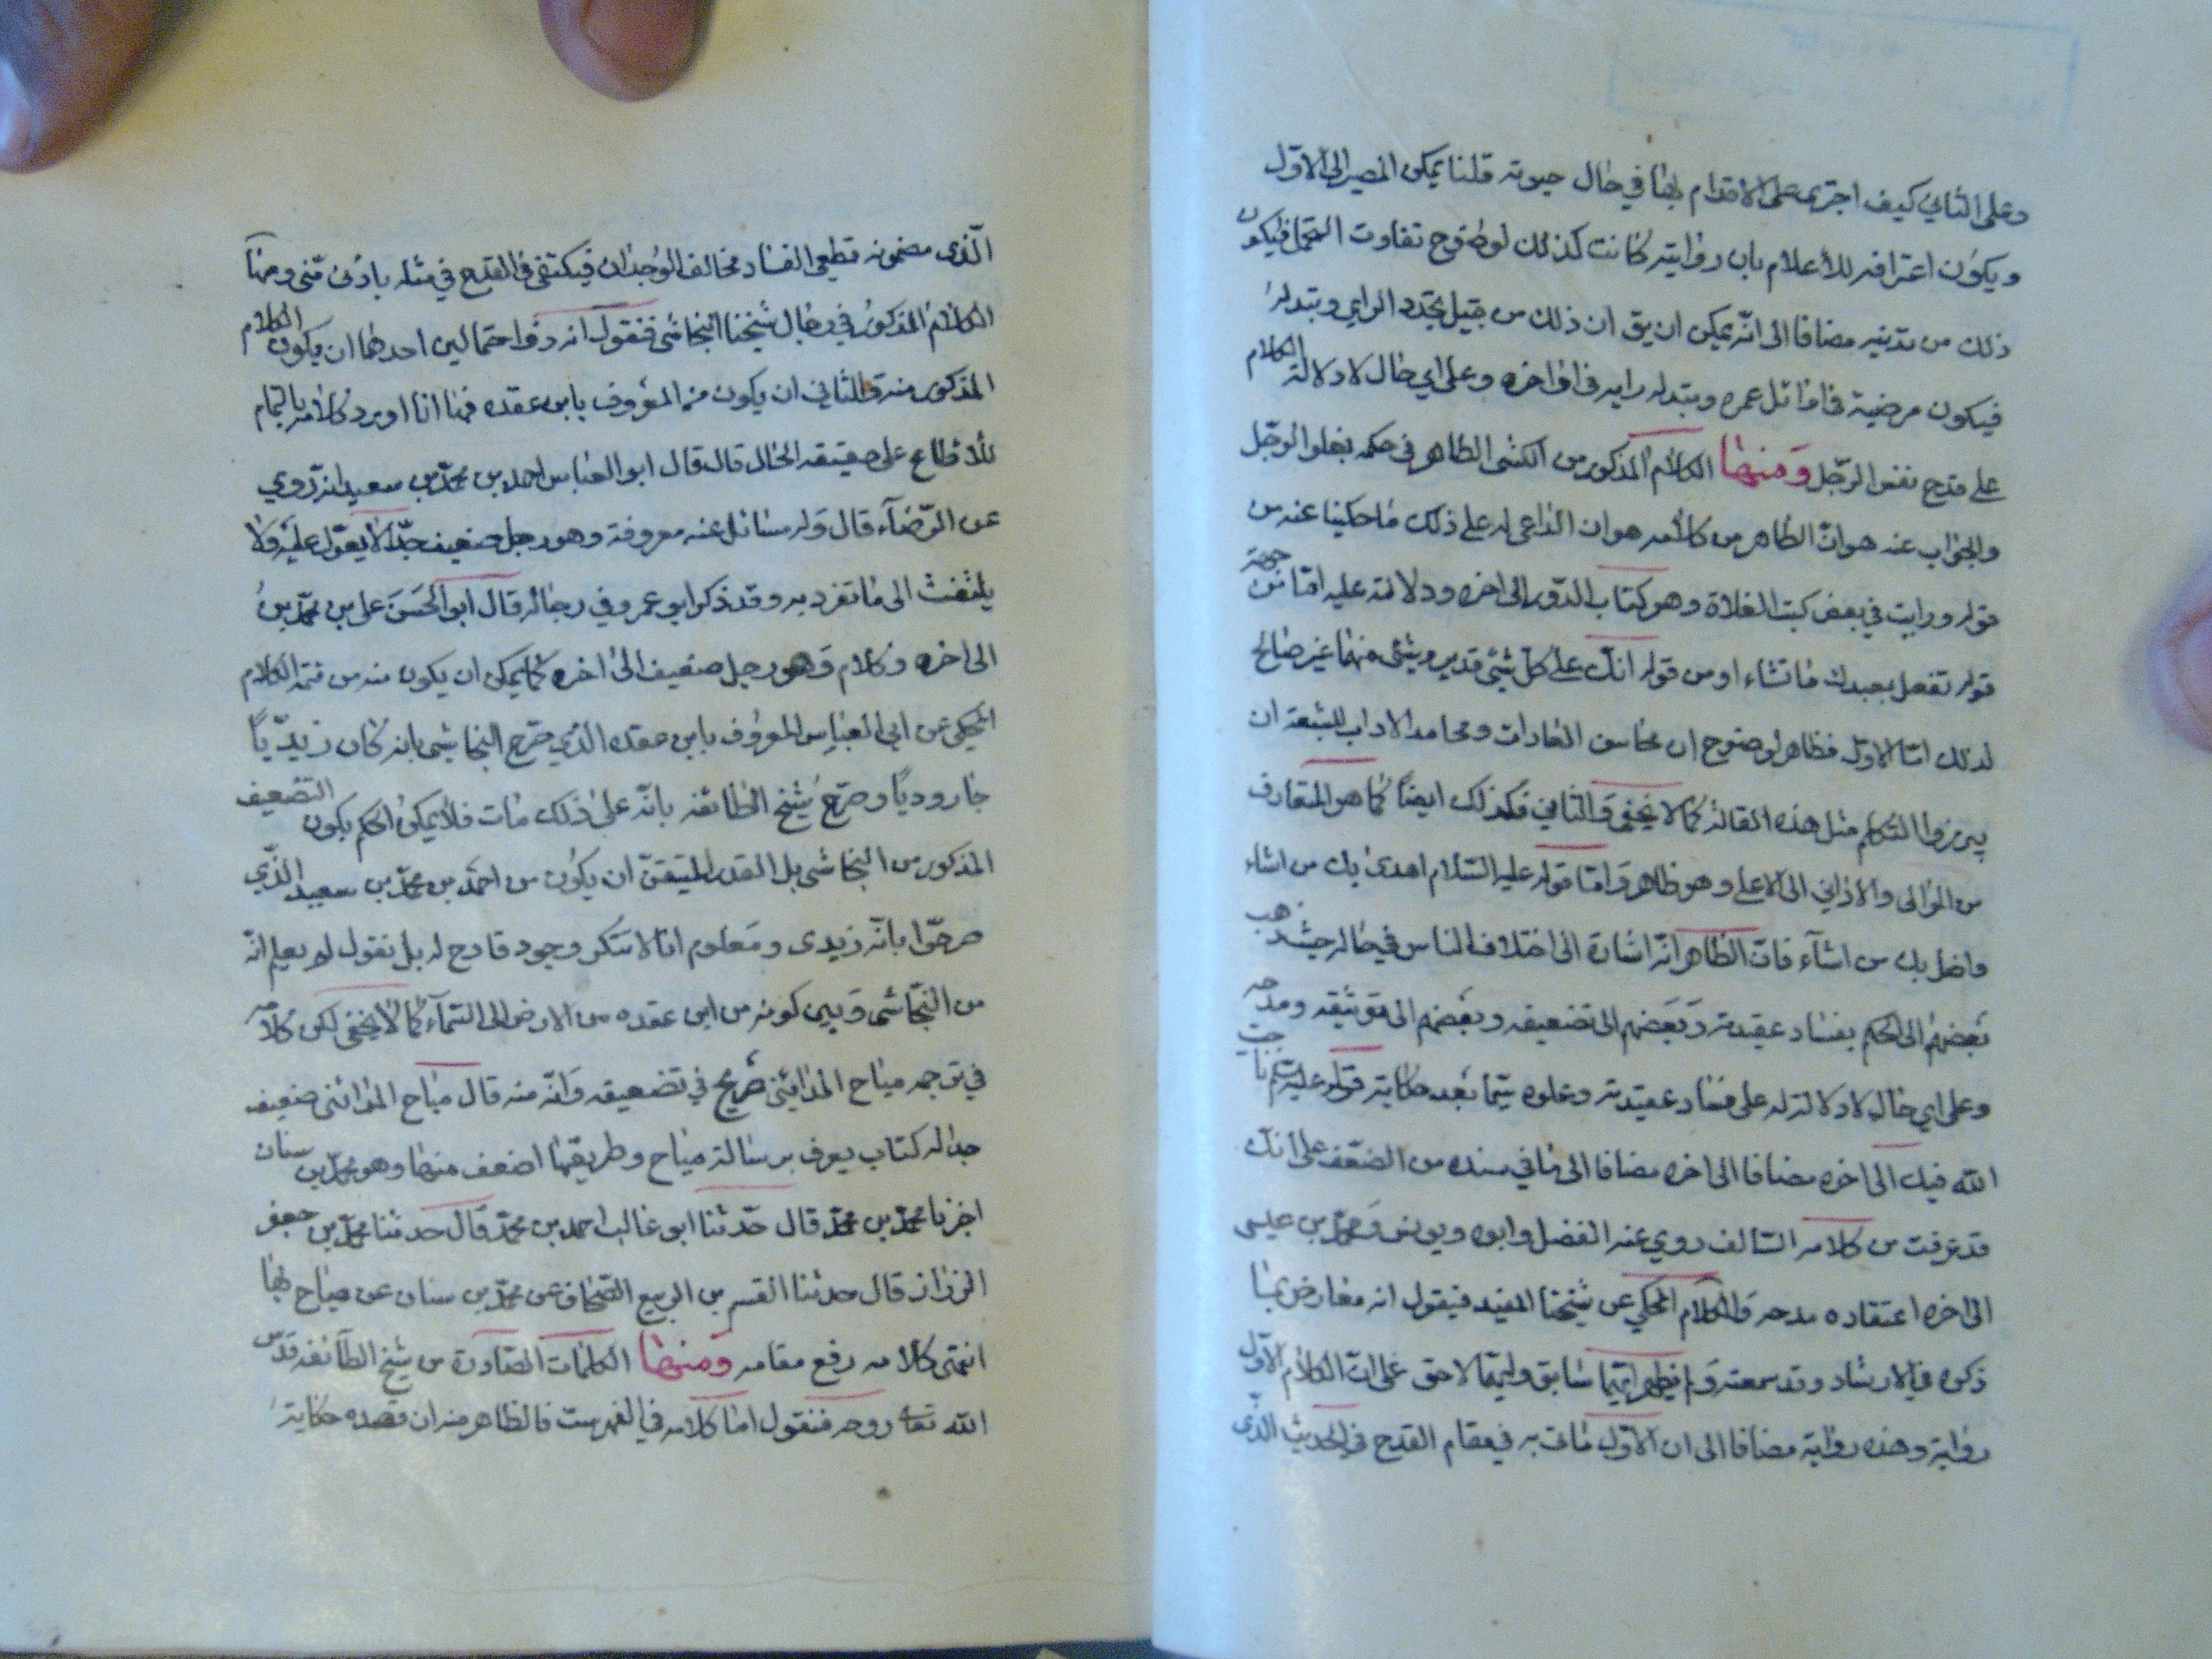 وعلى الثاني كيف اجترى على الاقدام بها في حال حيوته قلنا يمكن المصير الى الاول
ويكون اعترافه للأعلام بان روايته كانت كذلك لوضوح تفاوت التحمل فيكون
ذلك من تدينه مضافا الى انه يمكن ان يق ان ذلك من قبيل تجدد الراي وتبدله
فيكون مرضية في اوائل عمره وتبدله رايه في اواخره وعلى اي حال لا دلالة الكلام
على قدح نفس الرجل ومنها الكلام المذكور من الكشي الظاهر في حكمه بغلو الرجل
والجواب عنه هو ان الظاهر من كلامه هو ان الداعي له على ذلك ما حكينا عنه من
قوله ورايت في بعض كتب الغلاة وهو كتاب الدور الى اخره ودلالته عليه اما من جهة
قوله تفعل بعبدك ما تشاء او من قوله انك على كل شيء قدير وشيء منهما غير صالح
لذلك اما الاول فظاهر لوضوح ان محاسن العادات ومحامد الاداب للشيعة ان
يبرزوا التكلم مثل هذه المقالة كما لا يخفى والثاني فكذلك ايضا كما هو المتعارف
من الموالي والاداني الى الاعلى وهو ظاهر واما قوله عليه السلام اهدى بك من اشاء
واضل بك من اشآء فان الظاهر انه اشارة الى اختلاف الناس في حاله حيث ذهب
بعضهم الى الحكم بفساد عقيدته وبعضهم الى تضعيفه وبعضهم الى توثيقه ومدحه
وعلى اي حال لا دلالة له على فساد عقيدته وغلوه سيما بعد حكايته قوله عليه
الله فيك الى اخره مضافا الى اخره مضافا الى ما في سنده من الضعف على انك
قد عرفت من كلامه السالف روي عنه الفضل وابوه ويونس ومحمد بن عيسى
الى اخره اعتقاده مدحه والكلام المحكي عن شيخنا المفيد فيقول انه معارض بما
ذكره في الارشاد وقد سمعته سابق لاحق على ان الكلام الاول
رواية وهذه رواية مضافا الى ان الاول مات به في مقام القدح في الحديث الذي
الذي مضمونه قطعي الفساد مخالف الوجدان فيكتفى في القدح في مثله بادنى شيء ومنها
الكلام المذكور في رجال شيخنا النجاشي فنقول انه ذو احتمالين احدهما ان يكون الكلام
المذكور منه والثاني ان يكون من المعروف بابن عقده فها انا اورد كلامه بالتمام
للاطلاع على حقيقة الحال قال قال ابو العباس احمد بن محمد بن سعيد انه روي
عن الرضآء قال وله مسائل عنه معروفة وهو رجل ضعيف جدا لا يعول عليه ولا
يلتفت الى ما تفرد به وقد ذكر ابو عمرو في رجاله قال ابو الحسن علي بن محمد بن
الى اخره وكلام وهو رجل ضعيف الى اخره كما يمكن ان يكون منه من تتمة الكلام
المحكي عن ابي العباس المعروف بابن عقده الذي صرح النجاشي بانه كان زيديا
جاروديا وصرح شيخ الطائفة بانه على ذلك مات فلا يمكن الحكم بكون التضعيف
المذكور من النجاشي بل القدر المتيقن ان يكون من احمد بن محمد بن سعيد الذي
صرحوا بانه زيدي ومعلوم انا لا ننكر وجود قادح له بل نقول لم يعلم انه
من النجاشي وبين كونه من ابن عقده من الارض الى السمآء كما لا يخفى لكن كلامه
في ترجمه مياح المدايني صريح في تضعيفه وانه منه قال مياح المدائني ضعيف
جدا له كتاب يعرف برسالة مياح وطريقها اضعف منها وهو محمد بن سنان
اخبرنا محمد بن محمد قال حدثنا ابو غالب احمد بن محمد قال حدثنا محمد بن جعفر
الرزاز قال حدثنا القسم بن الربيع الصحاف عن محمد بن سنان عن مياح بها
انتهى كلامه رفع مقامه ومنها الكلمات الصادرة من شيخ الطائفه قدس
الله تعالى روحه فنقول اما كلامه في الفهرست فالظاهر منه ان قصده حكاية